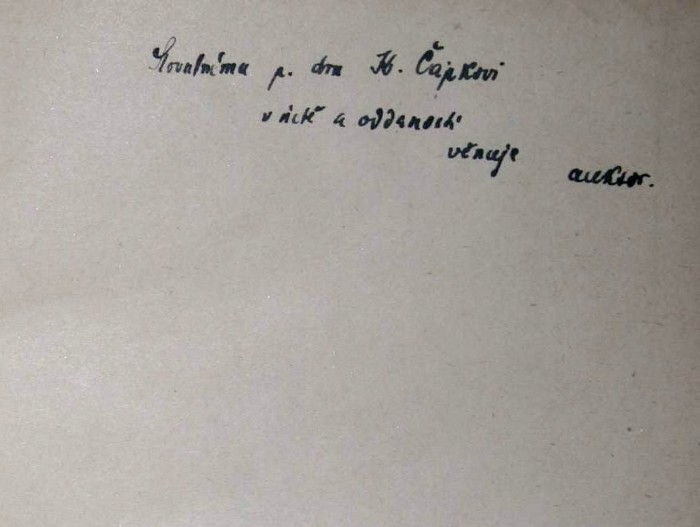 Slovutnému p. dru K. Čapkovi
v úctě a oddanosti
věnuje